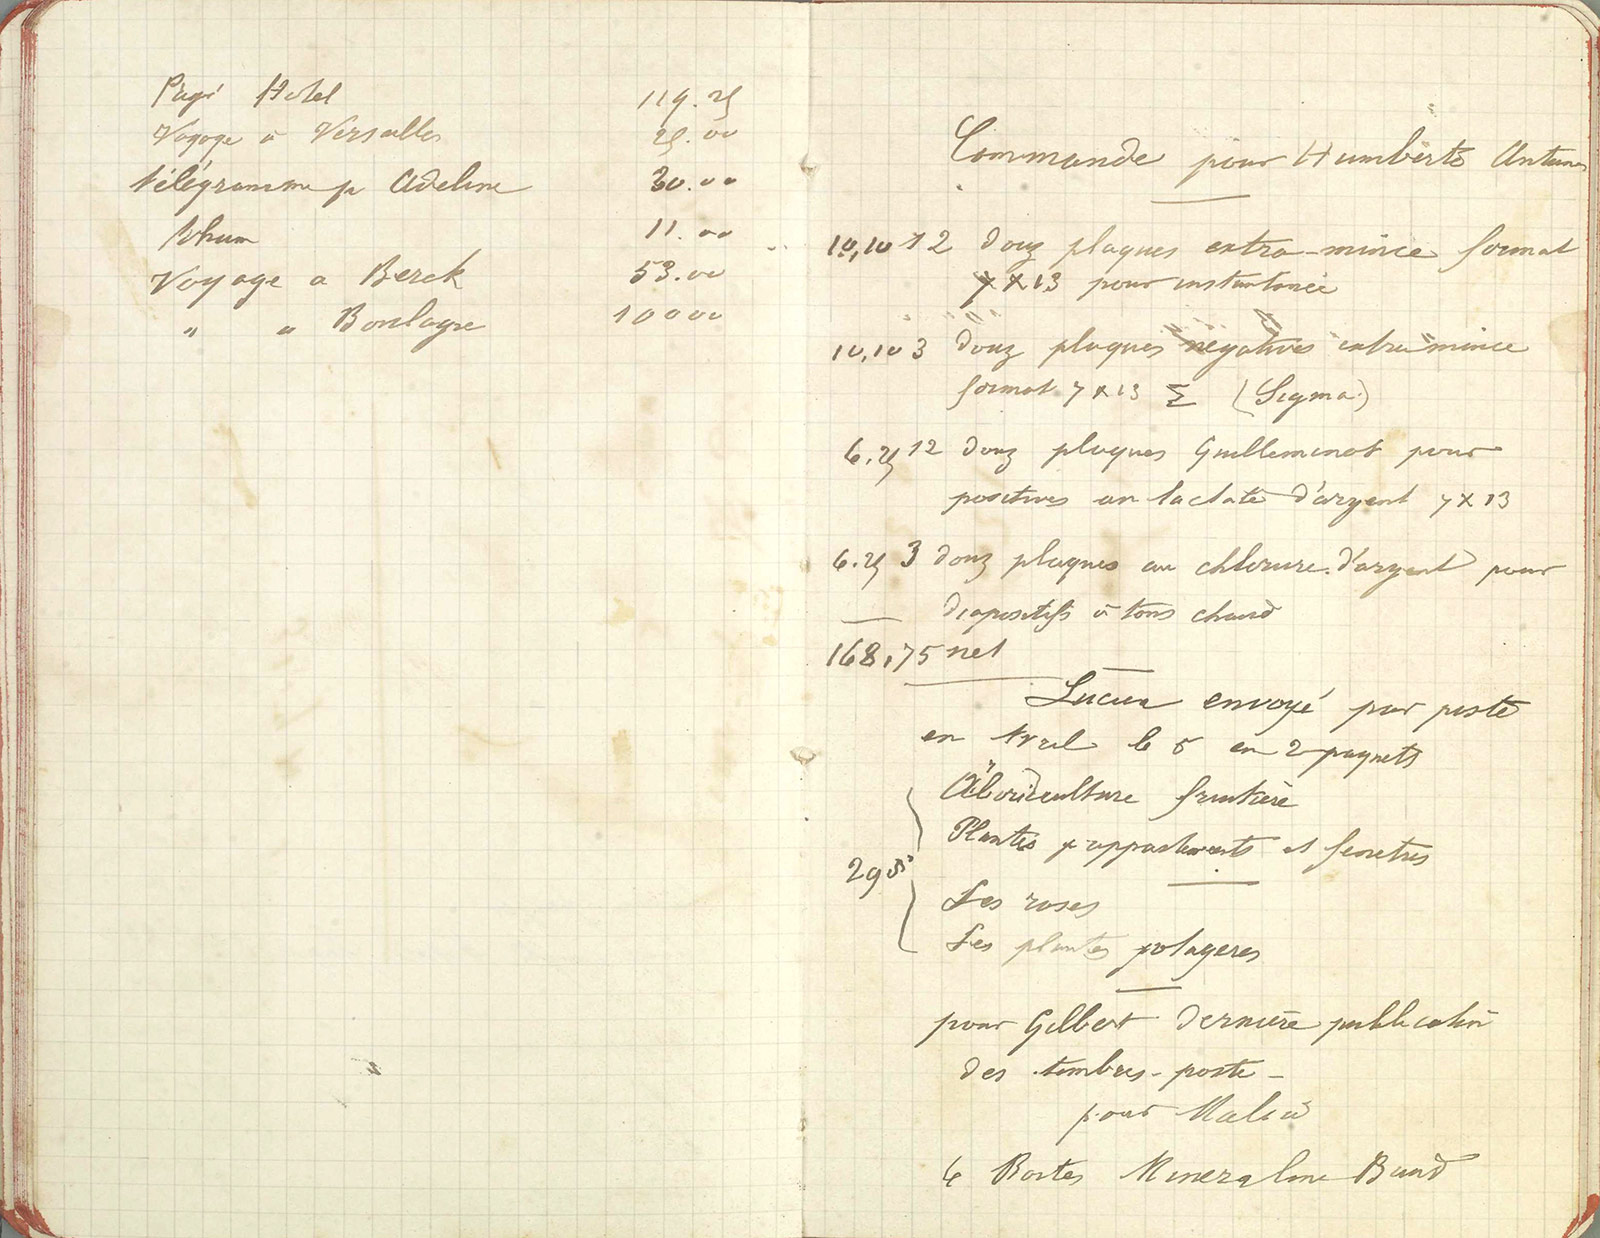 Payé Hotel 119.25
Voyage à Versailles 25.00
télégramme pr Adeline 30.00
Rhum 11.00
Voyage a Berck 53.00
" a Boulogne 10000
Commande pour Humberto Antunes
10,10 12 douz plaques extra-mince format
7 x 13 pour instantanée
10,10 3 douz plaques négatives extra mince
format 7 x 13 Σ (Sigma)
6.25 12 douz plaques Guilleminot pour
positives au lactate d'argent 7 x 13
6.25 3 douz plaques au chlorure d'argent pour
diapositifs à tons chaud
168,75 net
Lucien envoyé par poste
en Avril le 5 en 2 paquets
Arboriculture fruitière
Plantes d'appartements et fenetres
295
Les roses
Les plantes potageres
pour Gilbert dernière publication
des timbres-poste -
pour
Boites Mineraline